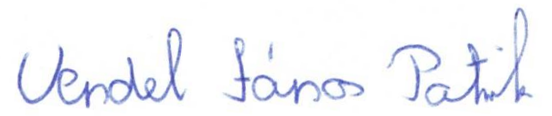 Vendel János Patrik